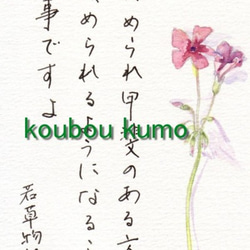 められ甲斐のある
められるようになる
事ですよ
若草物
koubou kumo